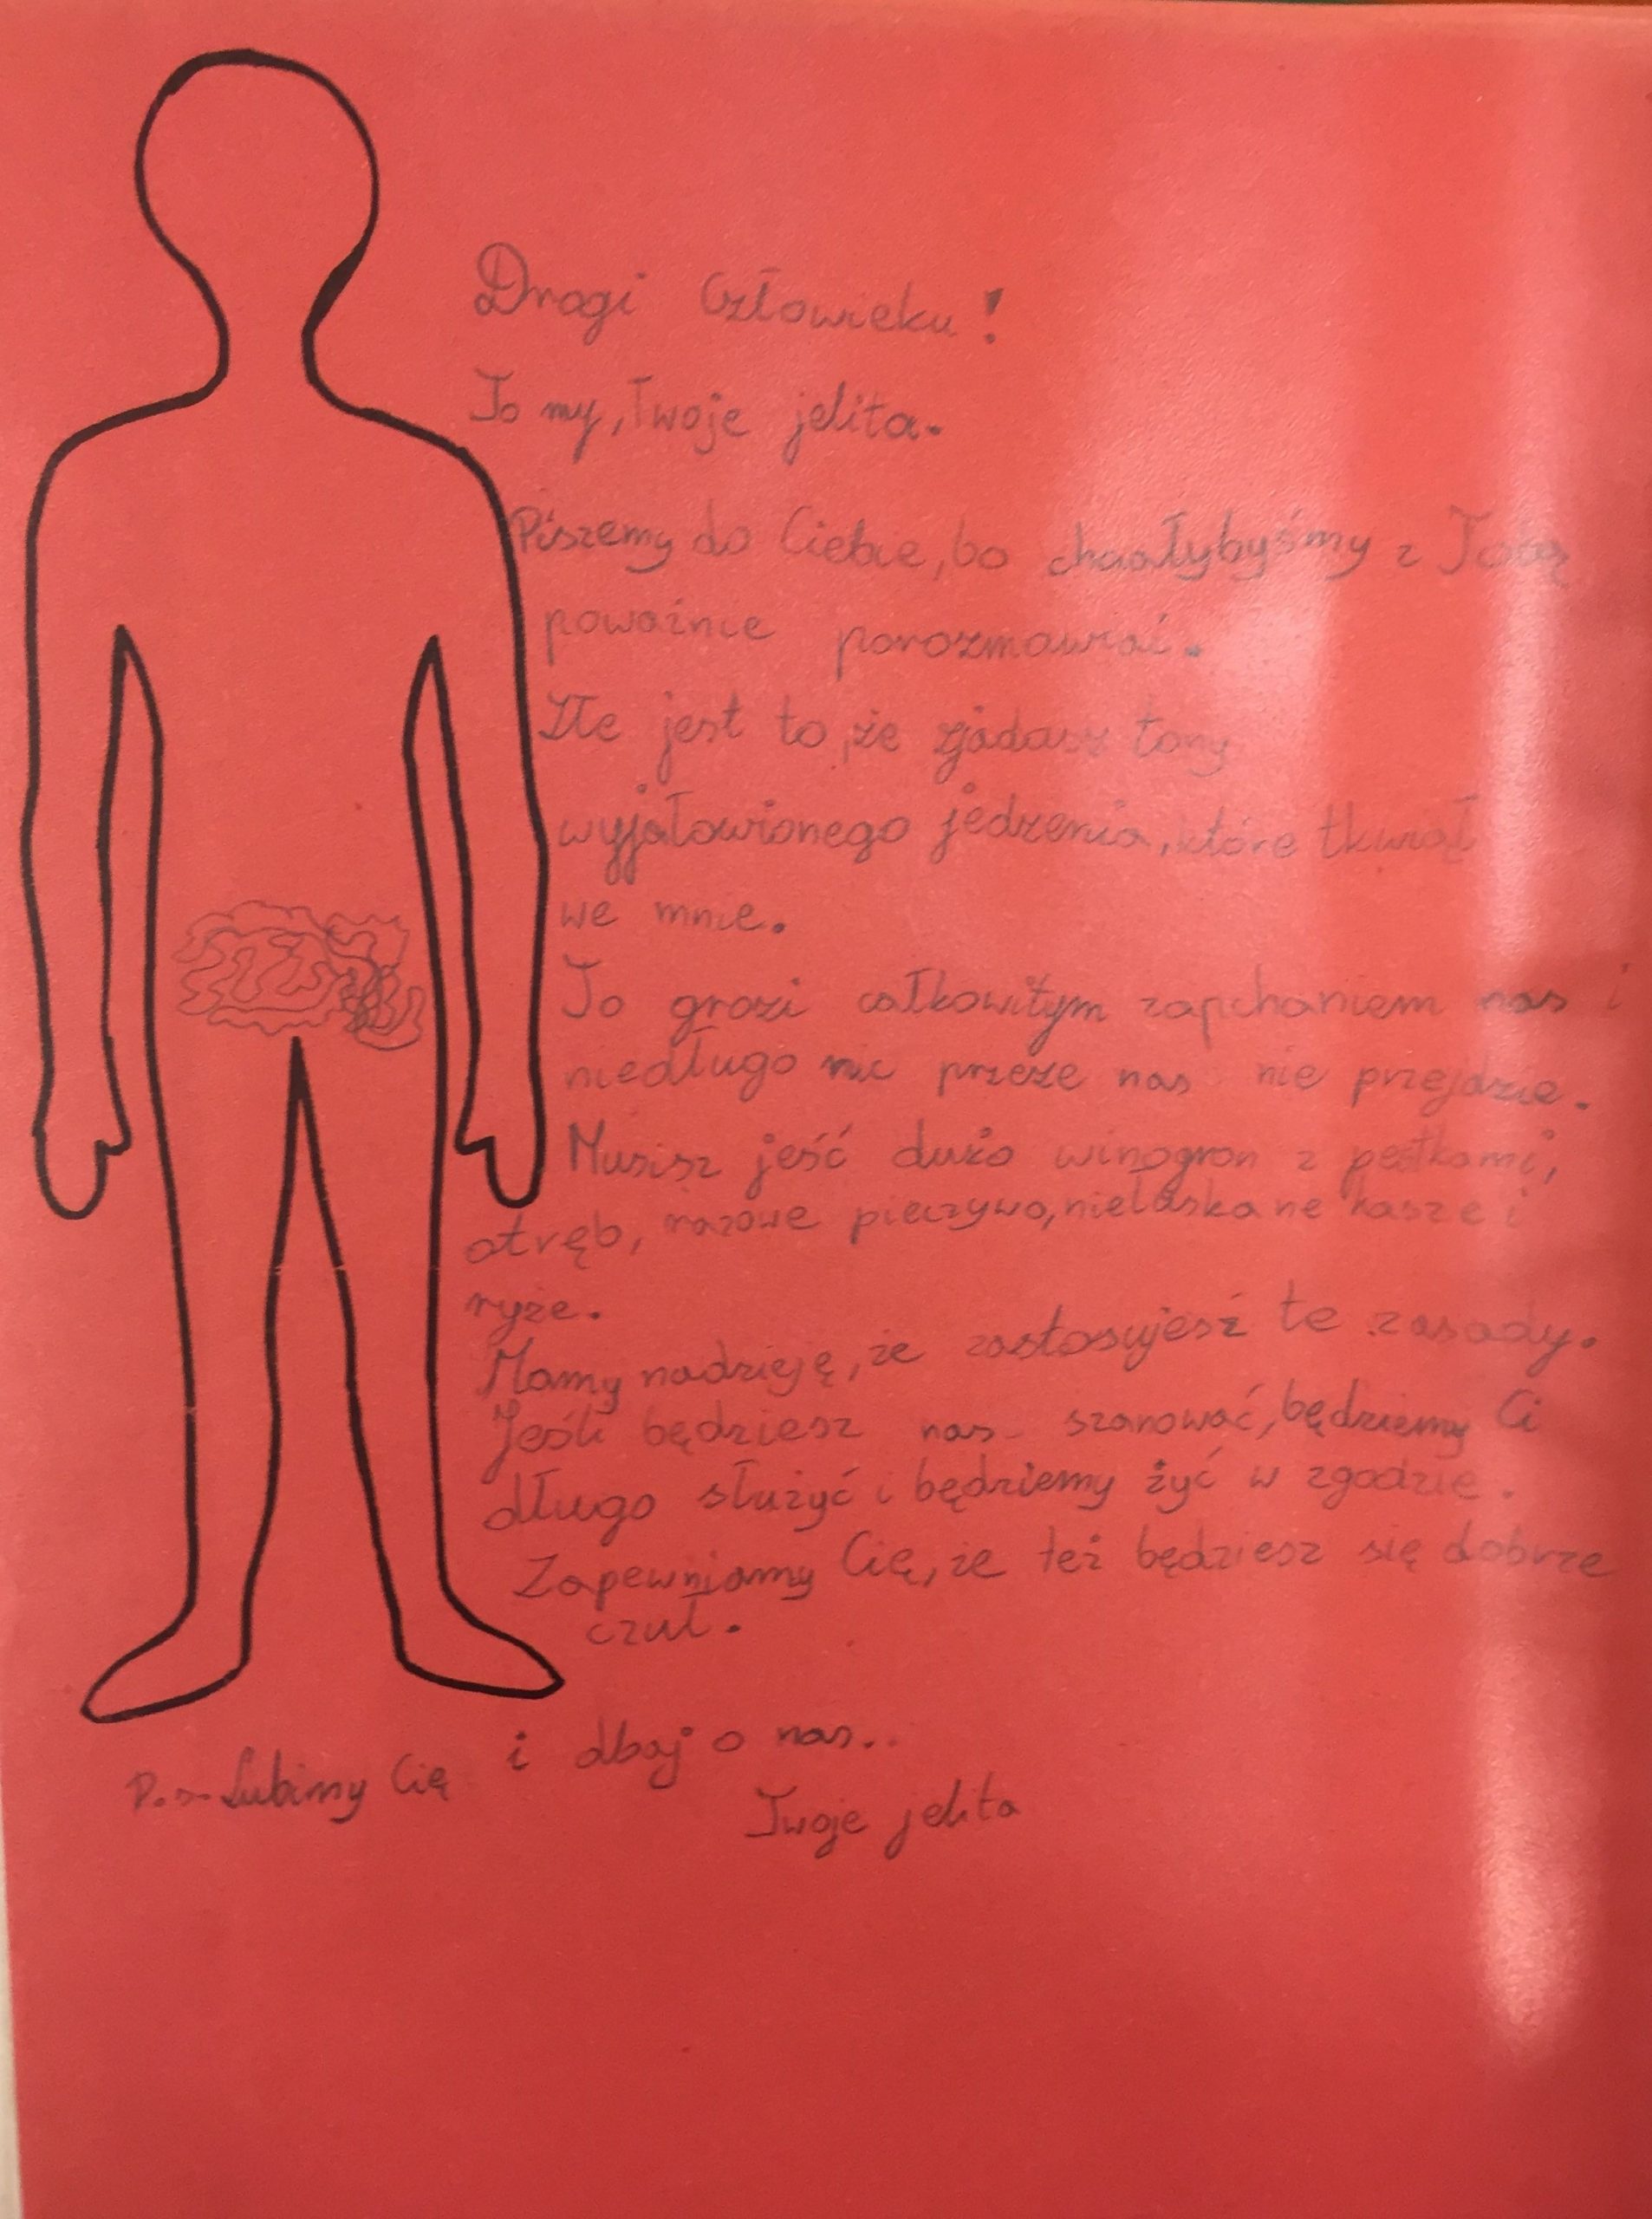 Drogi Człowieku!
To my, Twoje jelita.
Piszemy do Ciebie, bo chciałybyśmy z Tobą
poważnie porozmawiać.
Źle jest to, że zjadasz tony
wyjałowionego jedzenia, które
we mnie.
To grozi całkowitym zapchaniem nas i
niedługo nic przeze nas nie przejdzie.
Musisz jeść dużo winogron z pestkami,
otręb, razowe pieczywo, niełuskane kasze i
ryże.
Mamy nadzieję, że zastosujesz te zasady.
Jeśli będziesz nas szanować, będziemy Ci
długo służyć i będziemy żyć w zgodzie.
Zapewniamy Cię, że też będziesz się dobrze
czuł.
P.s. Lubimy Cię i dbaj o nas..
Twoje jelita